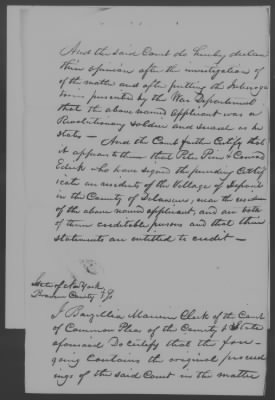 And the said Court do hereby declare
their opinion after the investigation of
of the matter and after putting the Interroga
tories presented by the War Department
that the above named applicant was a
Revolutionary Soldier and served as he
states — And the Court further Certify that
it appears to them that Peter Pine & Conrad
Edick who have signed the preceding Certif
icate are residents of the Village of Deposit
in the County of Delaware, near the residence
of the above named applicant, and are both
of them creditable persons and that their
statements are entitled to credit —
State of New York
Broome County } SS
I Barzillai Marvin Clerk of the Court
of Common Pleas of the County & State
aforesaid Do certify that the fore-
going contains the original proceed
ings of the said Court in the matter